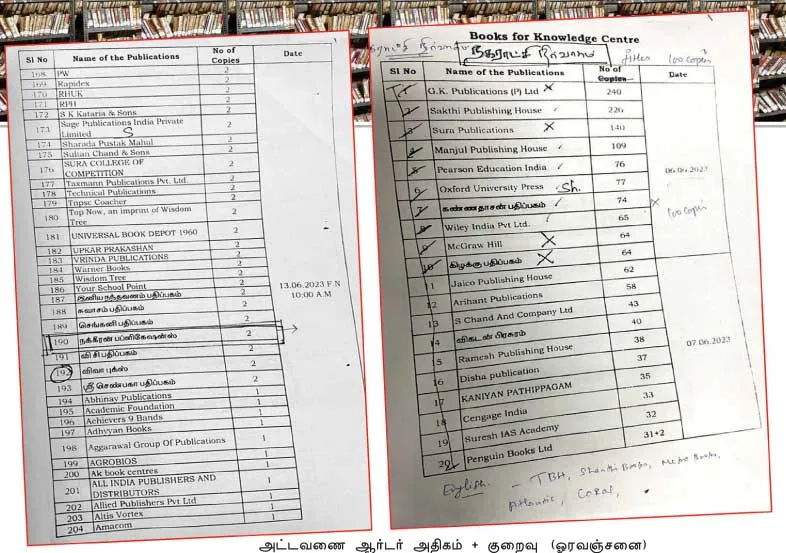 Sl No Name of the Publications No of Copies Date
168 PW 2
169 Rapidex 2
170 RHUK 2
171 RPH 2
172 S K Kataria & Sons 2
173 Sage Publications India Private Limited S 2
174 Sharada Pustak Mahal 2
175 Sultan Chand & Sons 2
176 SURA COLLEGE OF COMPETITION 2
177 Taxmann Publications Pvt. Ltd. 2
178 Technical Publications 2
179 Tnpsc Coacher 2
180 Top Now, an imprint of Wisdom Tree 2
181 UNIVERSAL BOOK DEPOT 1960 2
182 UPKAR PRAKASHAN 2
183 VRINDA PUBLICATIONS 2
184 Warner Books 2
185 Wisdom Tree 2
186 Your School Point 2
13.06.2023 F.N
10:00 A.M
187 இனிய நந்தவனம் பதிப்பகம் 2
188 சுவாசம் பதிப்பகம் 2
189 செங்கனி பதிப்பகம் 2
190 நக்கீரன் பப்ளிகேஷன்ஸ் 2
191 வி சி பதிப்பகம் 2
192 விவா புக்ஸ் 2
193 ஸ்ரீ செண்பகா பதிப்பகம் 2
194 Abhinay Publications 1
195 Academic Foundation 1
196 Achievers 9 Bands 1
197 Adhyyan Books 1
198 Aggarawal Group Of Publications 1
199 AGROBIOS 1
200 Ak book centres 1
201 ALL INDIA PUBLISHERS AND DISTRIBUTORS 1
202 Allied Publishers Pvt Ltd 1
203 Altis Vortex 1
204 Amacom 1
Books for Knowledge Centre
நகராட்சி நிர்வாகம் நகராட்சி நிர்வாகம் titles 100 copies
Sl No Name of the Publications No of Copies Date
1 G.K. Publications (P) Ltd 240
2 Sakthi Publishing House 226
3 Sura Publications 140
4 Manjul Publishing House 109
5 Pearson Education India 76
06.06.2023
6 Oxford University Press Sh. 77
7 கண்ணதாசன் பதிப்பகம் 74
100 copies
8 Wiley India Pvt Ltd. 65
9 McGraw Hill 64
10 கிழக்கு பதிப்பகம் 64
11 Jaico Publishing House 62
12 Arihant Publications 58
13 S Chand And Company Ltd 43
14 விகடன் பிரசுரம் 40
15 Ramesh Publishing House 38
07.06.2023
16 Disha publication 37
17 KANIYAN PATHIPPAGAM 35
18 Cengage India 33
19 Suresh IAS Academy 32
20 Penguin Books Ltd 31+2
English - TBH, Shanthi Books, Metro Books,
Atlantic,
அட்டவணை ஆர்டர் அதிகம் + குறைவு (ஓரவஞ்சனை)